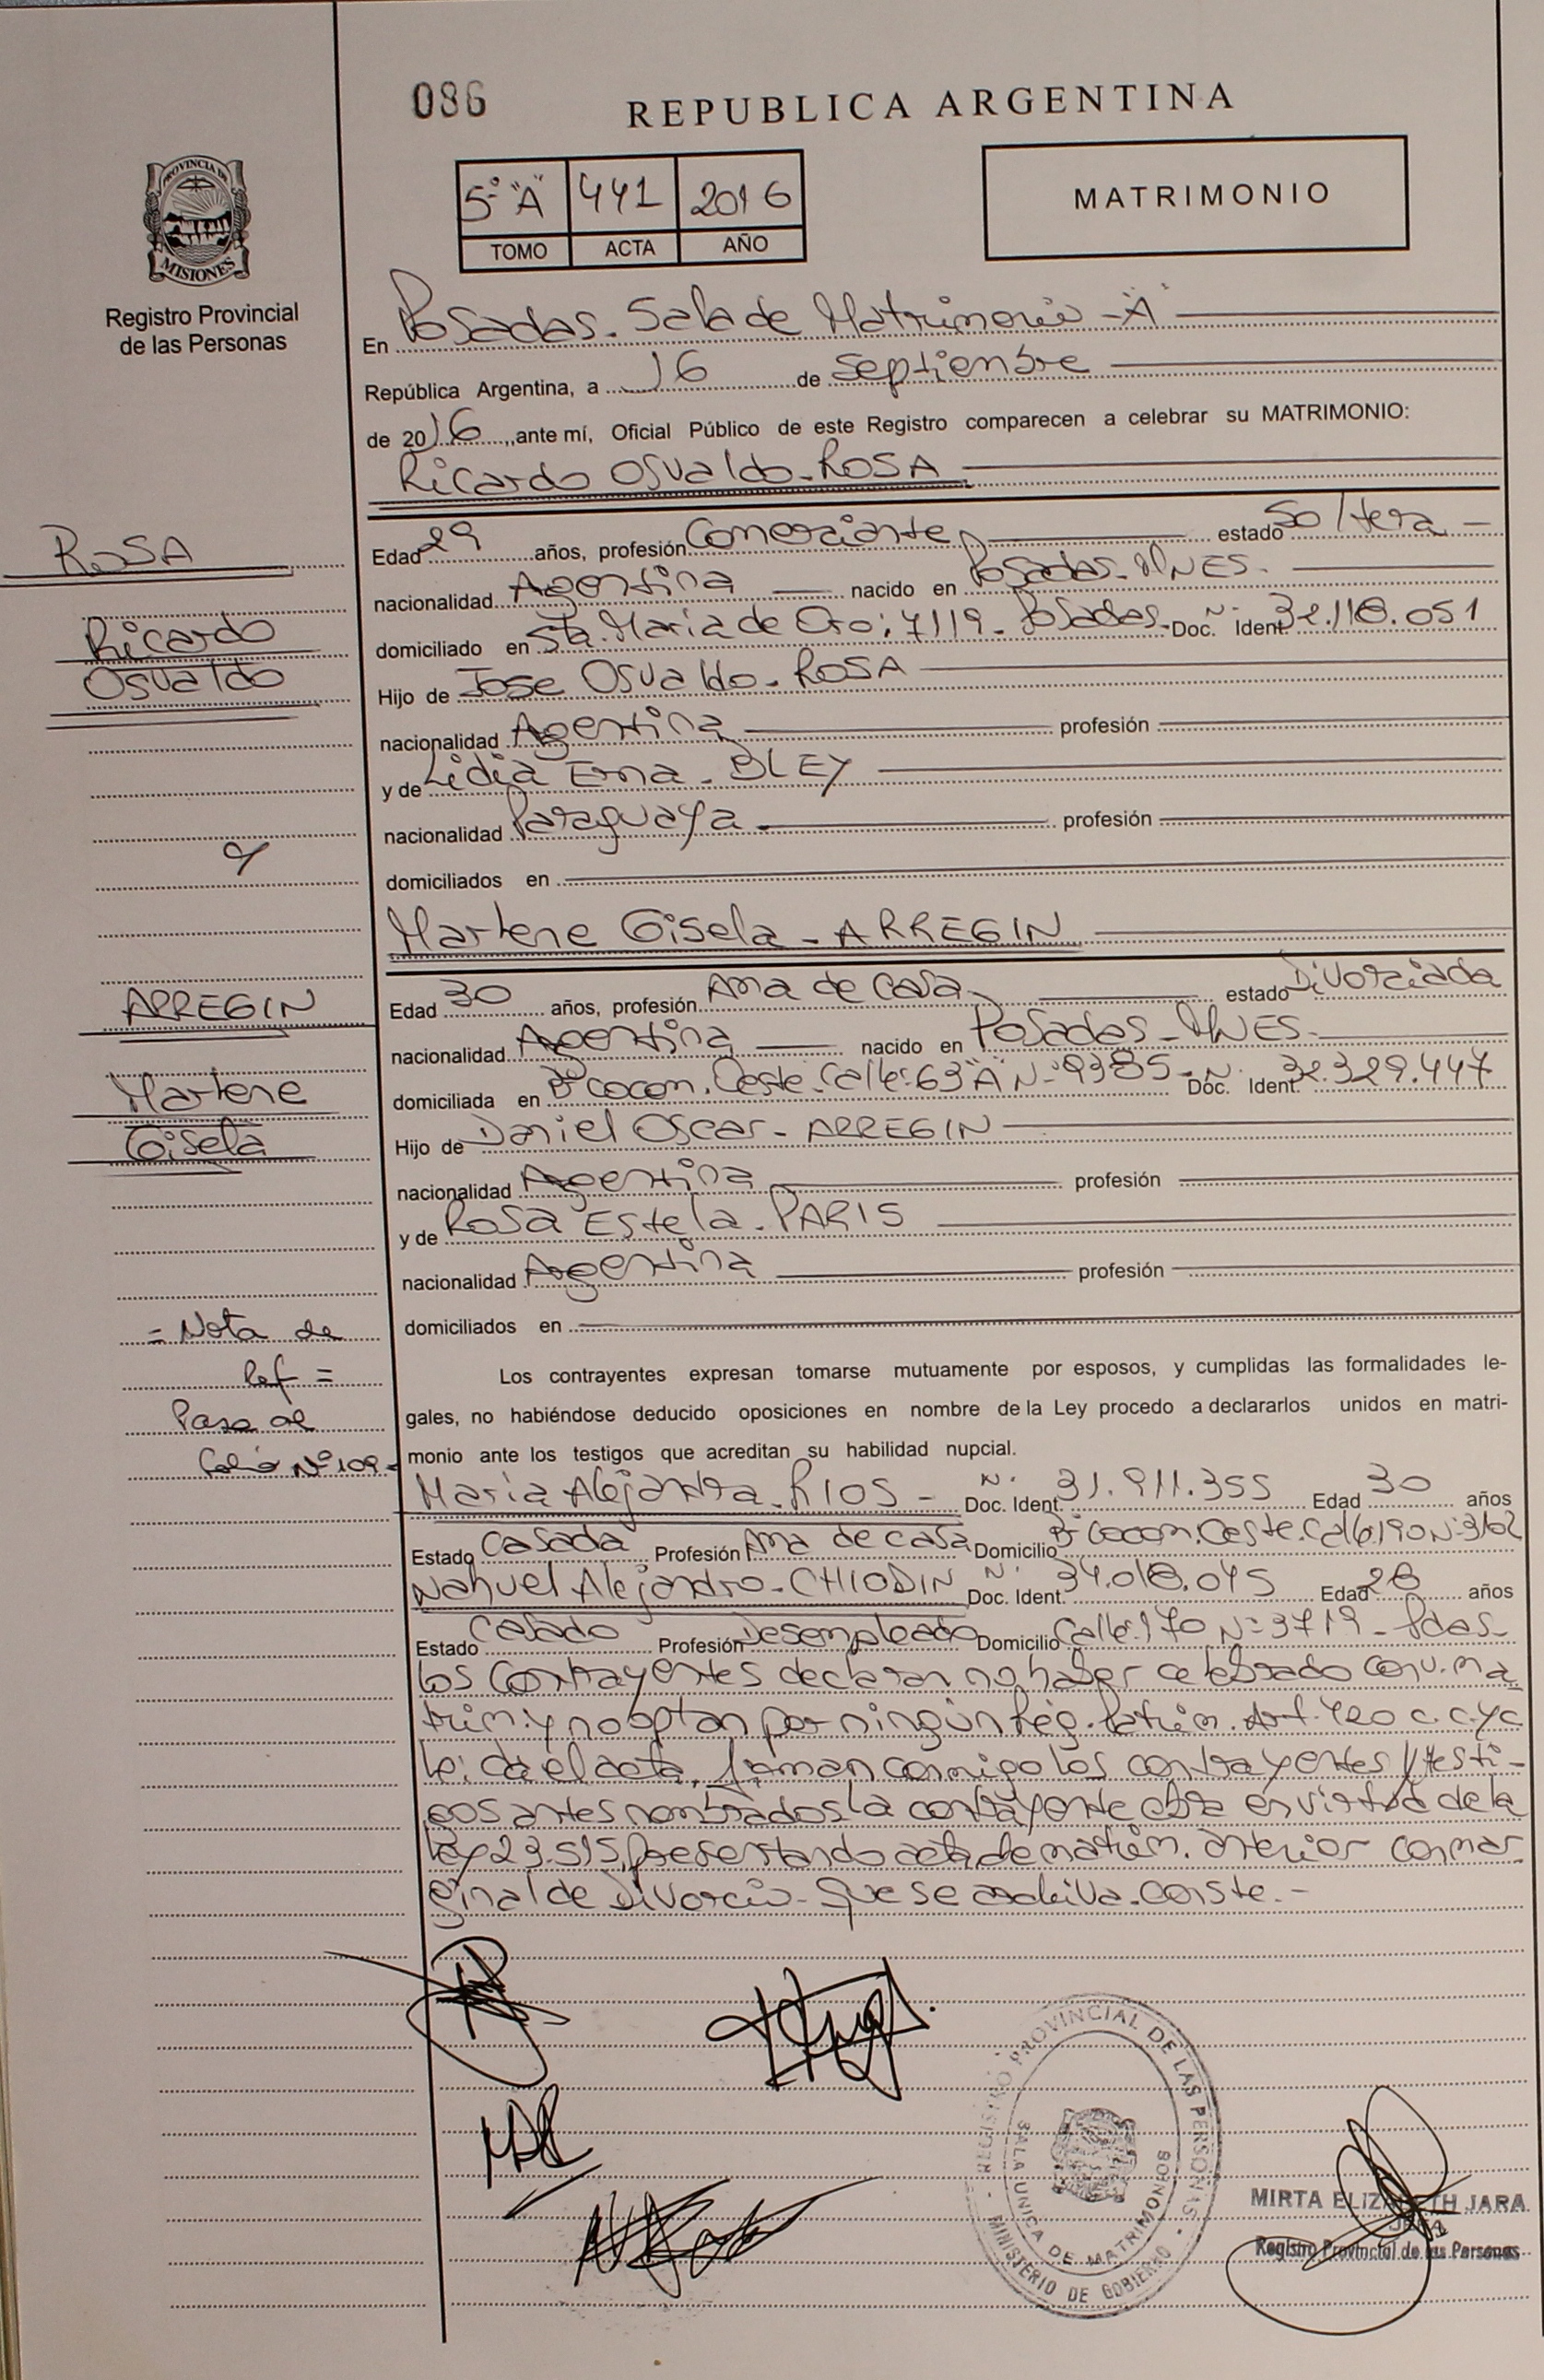 086
REPUBLICA ARGENTINA
PROVINCIA DE
MISIONES
Registro Provincial
de las Personas
5º "A" 441 2016
TOMO ACTA AÑO
MATRIMONIO
En Posadas. Sala de Matrimonio - "A"
República Argentina, a 16 de Septiembre
de 2016, ante mí, Oficial Público de este Registro comparecen a celebrar su MATRIMONIO:
Ricardo Osvaldo - ROSA
ROSA
Ricardo
Osvaldo
Edad 29 años, profesión Comerciante estado Soltera
nacionalidad Argentina nacido en Posadas - MNES.
domiciliado en Sta. Maria de Oro: 7119 - Posadas - Doc. Ident. Nº 32.118.051
Hijo de Jose Osvaldo - ROSA
nacionalidad Argentina profesión
y de Lidia Erna - BLEY
nacionalidad Paraguaya profesión
domiciliados en
y
Marlene Gisela - ARREGIN
ARREGIN
Marlene
Gisela
Edad 30 años, profesión Ama de Casa estado Divorciada
nacionalidad Argentina nacido en Posadas - MNES.
domiciliada en Bº Cocom. Oeste. Calle: 63 "A" Nº 9385 - Doc. Ident. Nº 32.329.447
Hijo de Daniel Oscar - ARREGIN
nacionalidad Argentina profesión
y de Rosa Estela - PARIS
nacionalidad Argentina profesión
domiciliados en
= Nota de
Ref =
Pasa al
Folio Nº 109-
Los contrayentes expresan tomarse mutuamente por esposos, y cumplidas las formalidades le-
gales, no habiéndose deducido oposiciones en nombre de la Ley procedo a declararlos unidos en matri-
monio ante los testigos que acreditan su habilidad nupcial.
Maria Alejandra - RIOS - Doc. Ident. Nº 31.911.355 Edad 30 años
Estado Casada Profesión Ama de casa Domicilio Bº Cocom. Oeste. Calle: 190 Nº
Nahuel Alejandro - CHIODIN Doc. Ident. Nº 34.018.045 Edad 28 años
Estado Casado Profesión Desempleado Domicilio Calle: 170 Nº 3719 - Pdas -
Los Contrayentes declaran no haber celebrado conv. ma
trim. y no optan por ningún Rég. Patrim. Art. 420 C.C.yC
Leída el acta, firman conmigo los contrayentes y testi-
gos antes nombrados. La contrayente obra en virtud de la
Ley 23.515, presentando acta de matrim. anterior con mar
ginal de Divorcio - Que se archiva. Conste. -
REGISTRO PROVINCIAL DE LAS PERSONAS
SALA UNICA DE MATRIMONIOS
MINISTERIO DE GOBIERNO
MIRTA ELIZABETH JARA
JEFA
Registro Provincial de las Personas